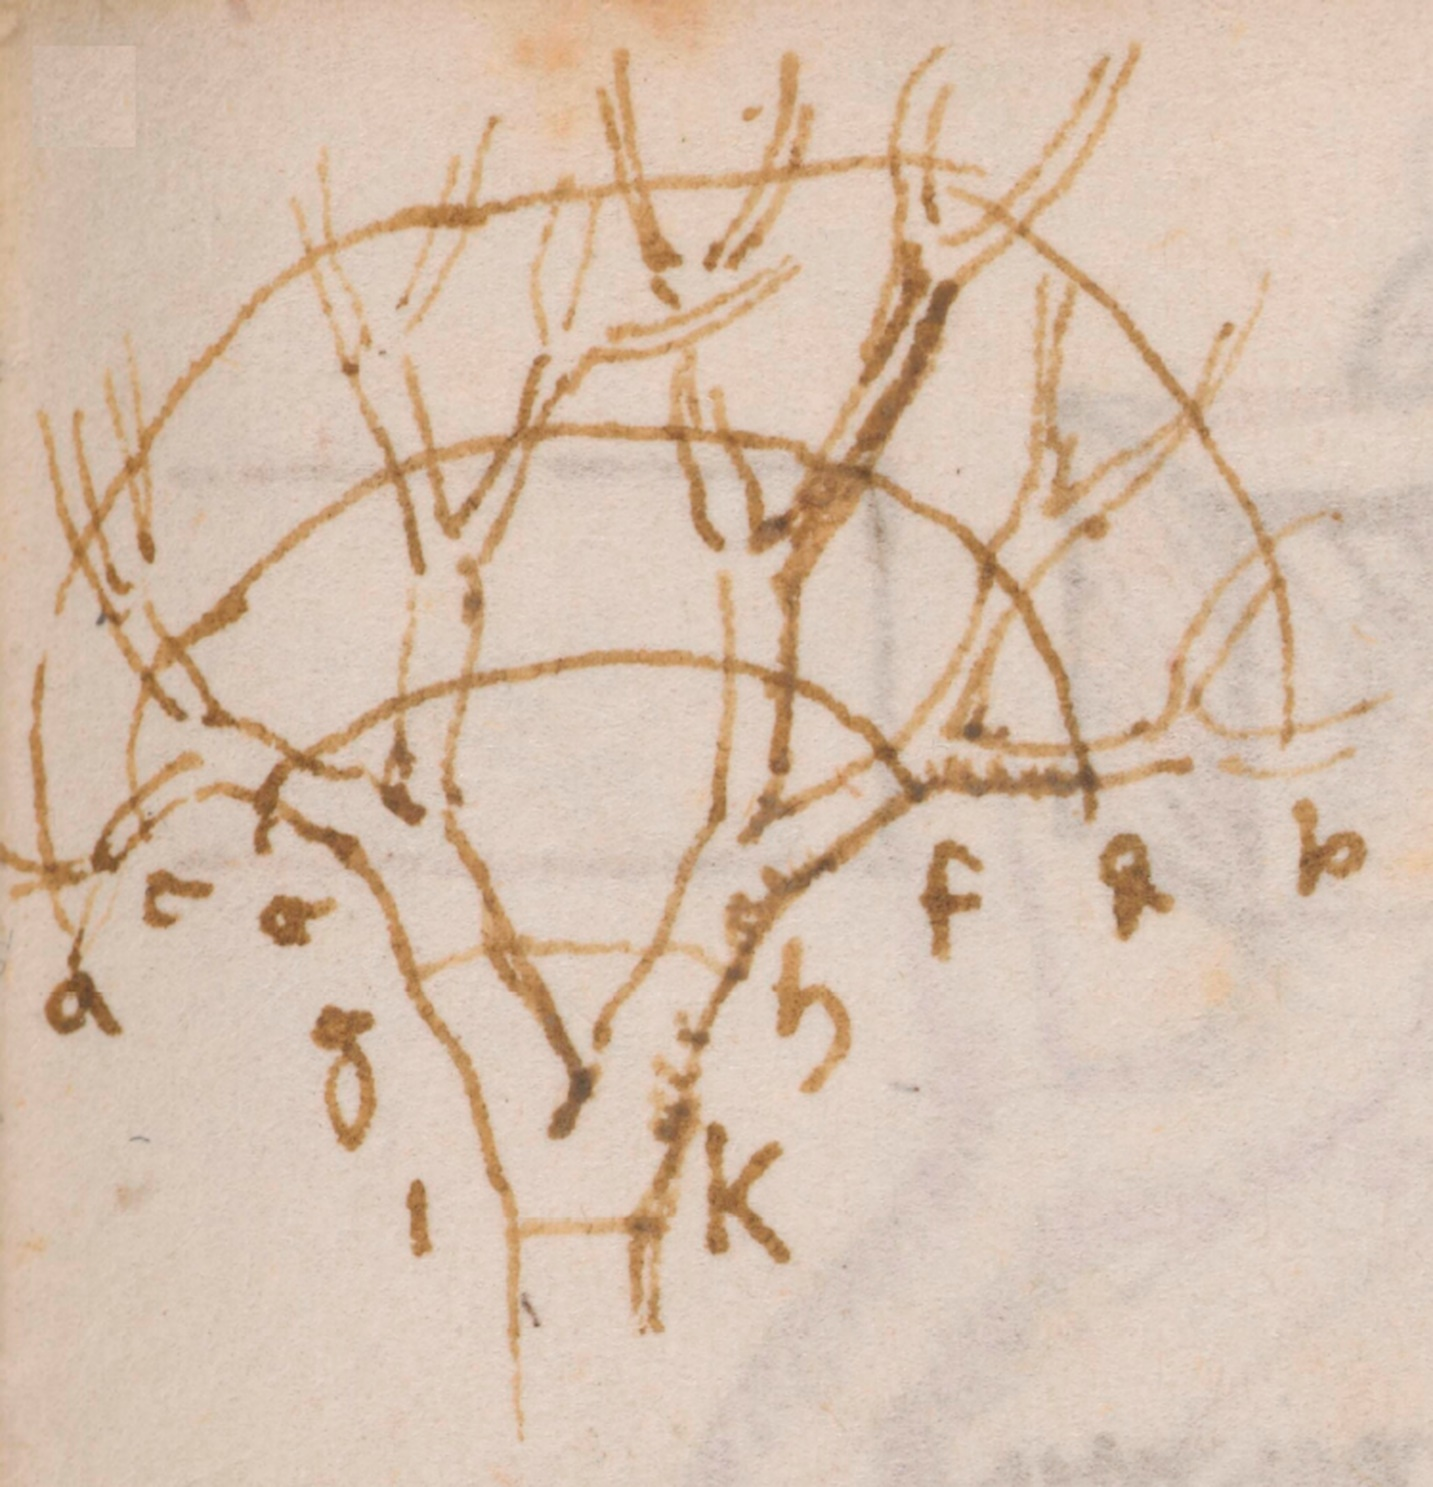 c e f d b
a
g h
i k